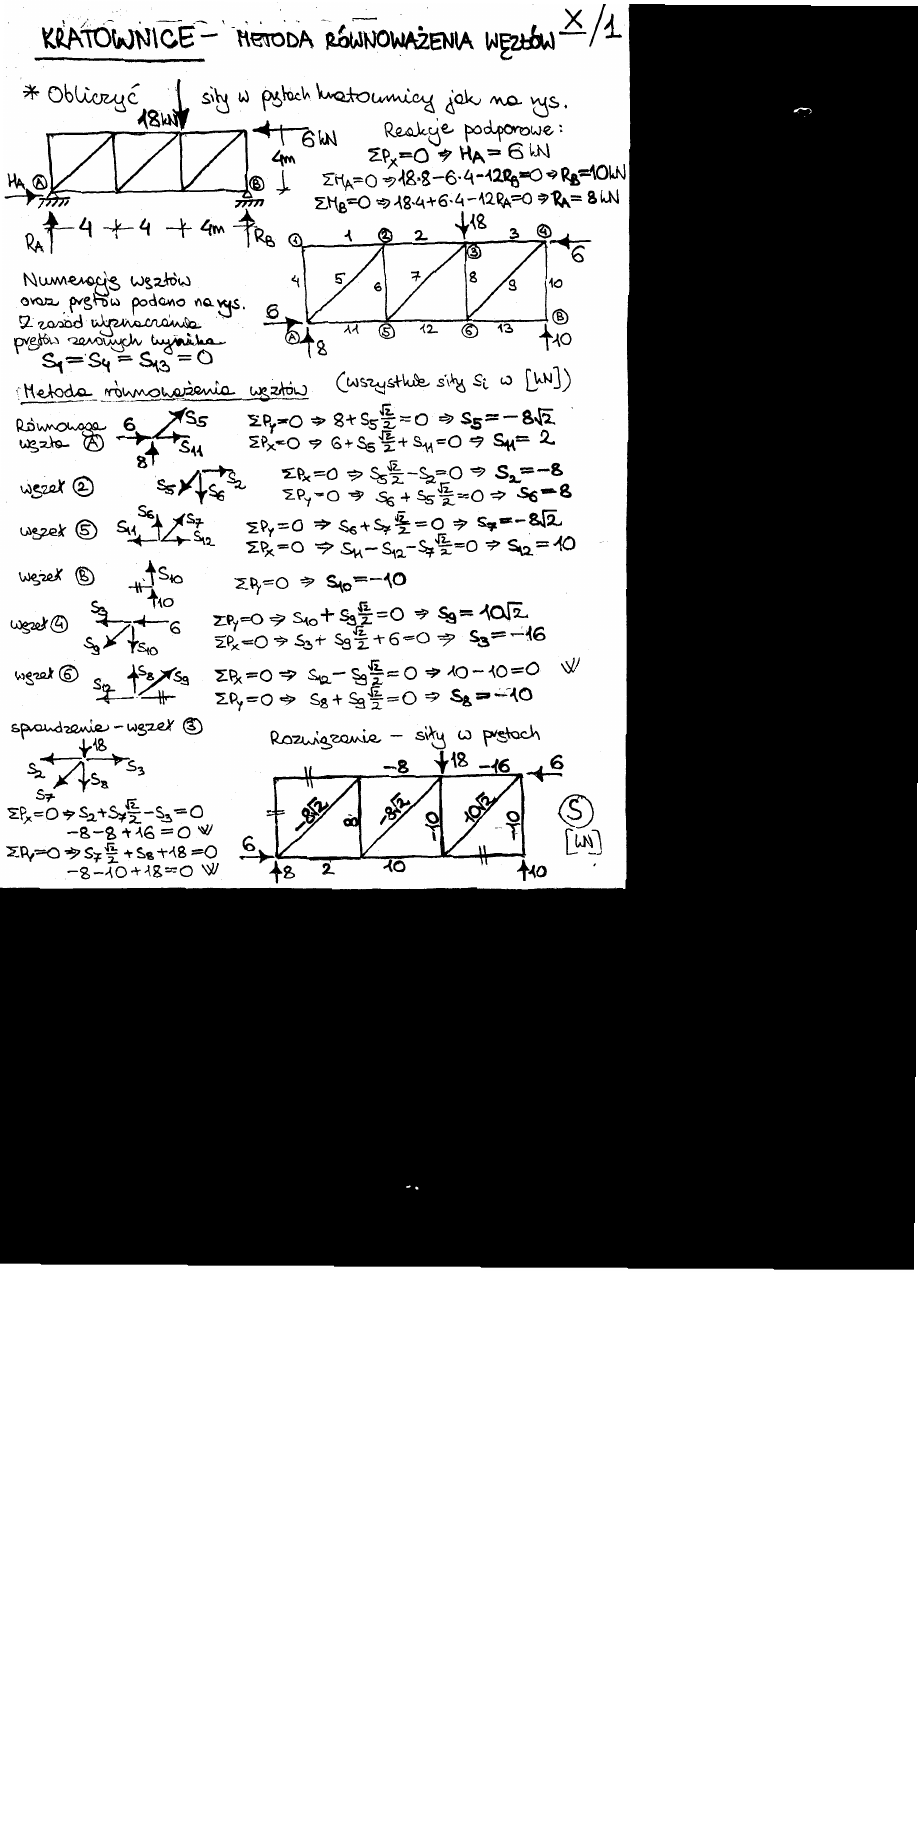 KRATOWNICE – METODA RÓWNOWAŻENIA WĘZŁÓW X/1
* Obliczyć siły w prętach kratownicy jak na rys.
18kN
6kN
4m
HA A B
RA 4 4 4m RB
Reakcje podporowe:
ΣPx=0 ⇒ HA = 6 kN
ΣMA=0 ⇒ 18·8−6·4−12RB=0 ⇒ RB=10kN
ΣMB=0 ⇒ 18·4+6·4−12RA=0 ⇒ RA= 8 kN
18
1 1 2 2 3 4
6
4 5 6 7 3 8 9 10
6
A 11 5 12 6 13 B
8 10
Numerację węzłów
oraz prętów podano na rys.
Z zasad wyznaczania
prętów zerowych wynika
S1 = S4 = S13 = 0
Metoda równoważenia węzłów (wszystkie siły Si w [kN])
Równowaga
węzła A
6 S5 8 S11
ΣPy=0 ⇒ 8+S5 √2/2 = 0 ⇒ S5 = −8√2
ΣPx=0 ⇒ 6+S5 √2/2 + S11 = 0 ⇒ S11 = 2
węzeł 2
S5 S6 S2
ΣPx=0 ⇒ S5 √2/2 − S2 = 0 ⇒ S2 = −8
ΣPy=0 ⇒ S6 + S5 √2/2 = 0 ⇒ S6 = 8
węzeł 5
S11 S6 S7 S12
ΣPy=0 ⇒ S6 + S7 √2/2 = 0 ⇒ S7 = −8√2
ΣPx=0 ⇒ S11 − S12 − S7 √2/2 = 0 ⇒ S12 = 10
węzeł B
S10 10
ΣPy=0 ⇒ S10 = −10
węzeł 4
S3 6 S9 S10
ΣPy=0 ⇒ S10 + S9 √2/2 = 0 ⇒ S9 = 10√2
ΣPx=0 ⇒ S3 + S9 √2/2 + 6 = 0 ⇒ S3 = −16
węzeł 6
S12 S8 S9
ΣPx=0 ⇒ S12 − S9 √2/2 = 0 ⇒ 10−10=0
ΣPy=0 ⇒ S8 + S9 √2/2 = 0 ⇒ S8 = −10
sprawdzenie – węzeł 3
18
S2 S3
S7 S8
ΣPx=0 ⇒ S2+S7 √2/2 − S3 = 0
−8−8+16=0
ΣPy=0 ⇒ S7 √2/2 + S8 + 18 = 0
−8−10+18=0
Rozwiązanie – siły w prętach
−8 18 −16 6
−8√2 8 −8√2 −10 10√2 −10
S
[kN]
6
8 2 10 10